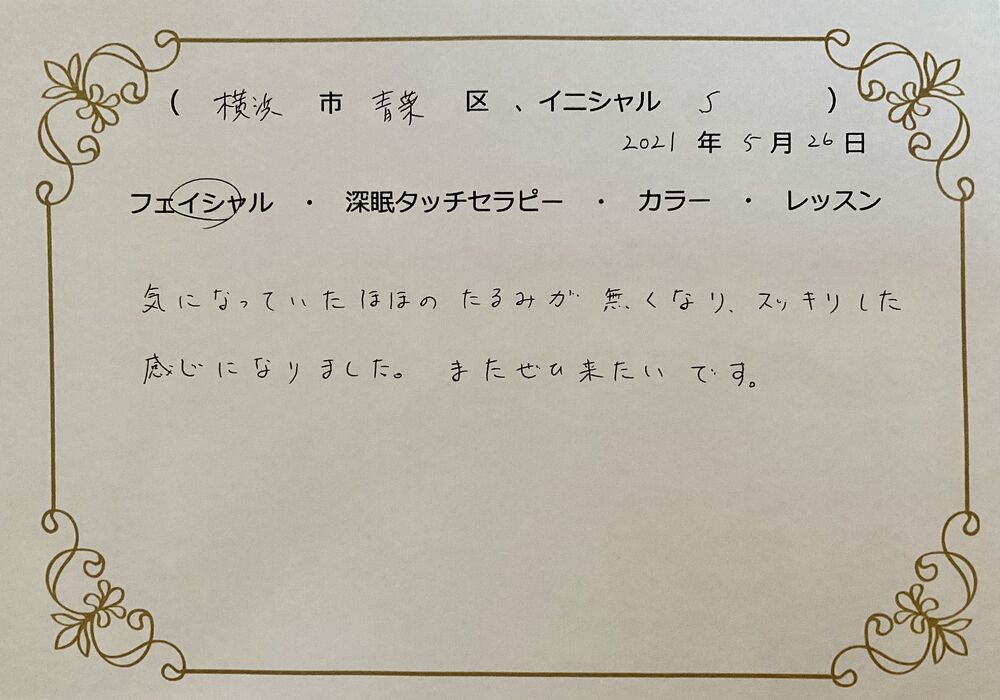 ( 横浜 市 青葉 区 、イニシャル S )
2021 年 5 月 26 日
フェイシャル ・ 深眠タッチセラピー ・ カラー ・ レッスン
気になっていたほほのたるみが無くなり、スッキリした
感じになりました。 またぜひ来たいです。